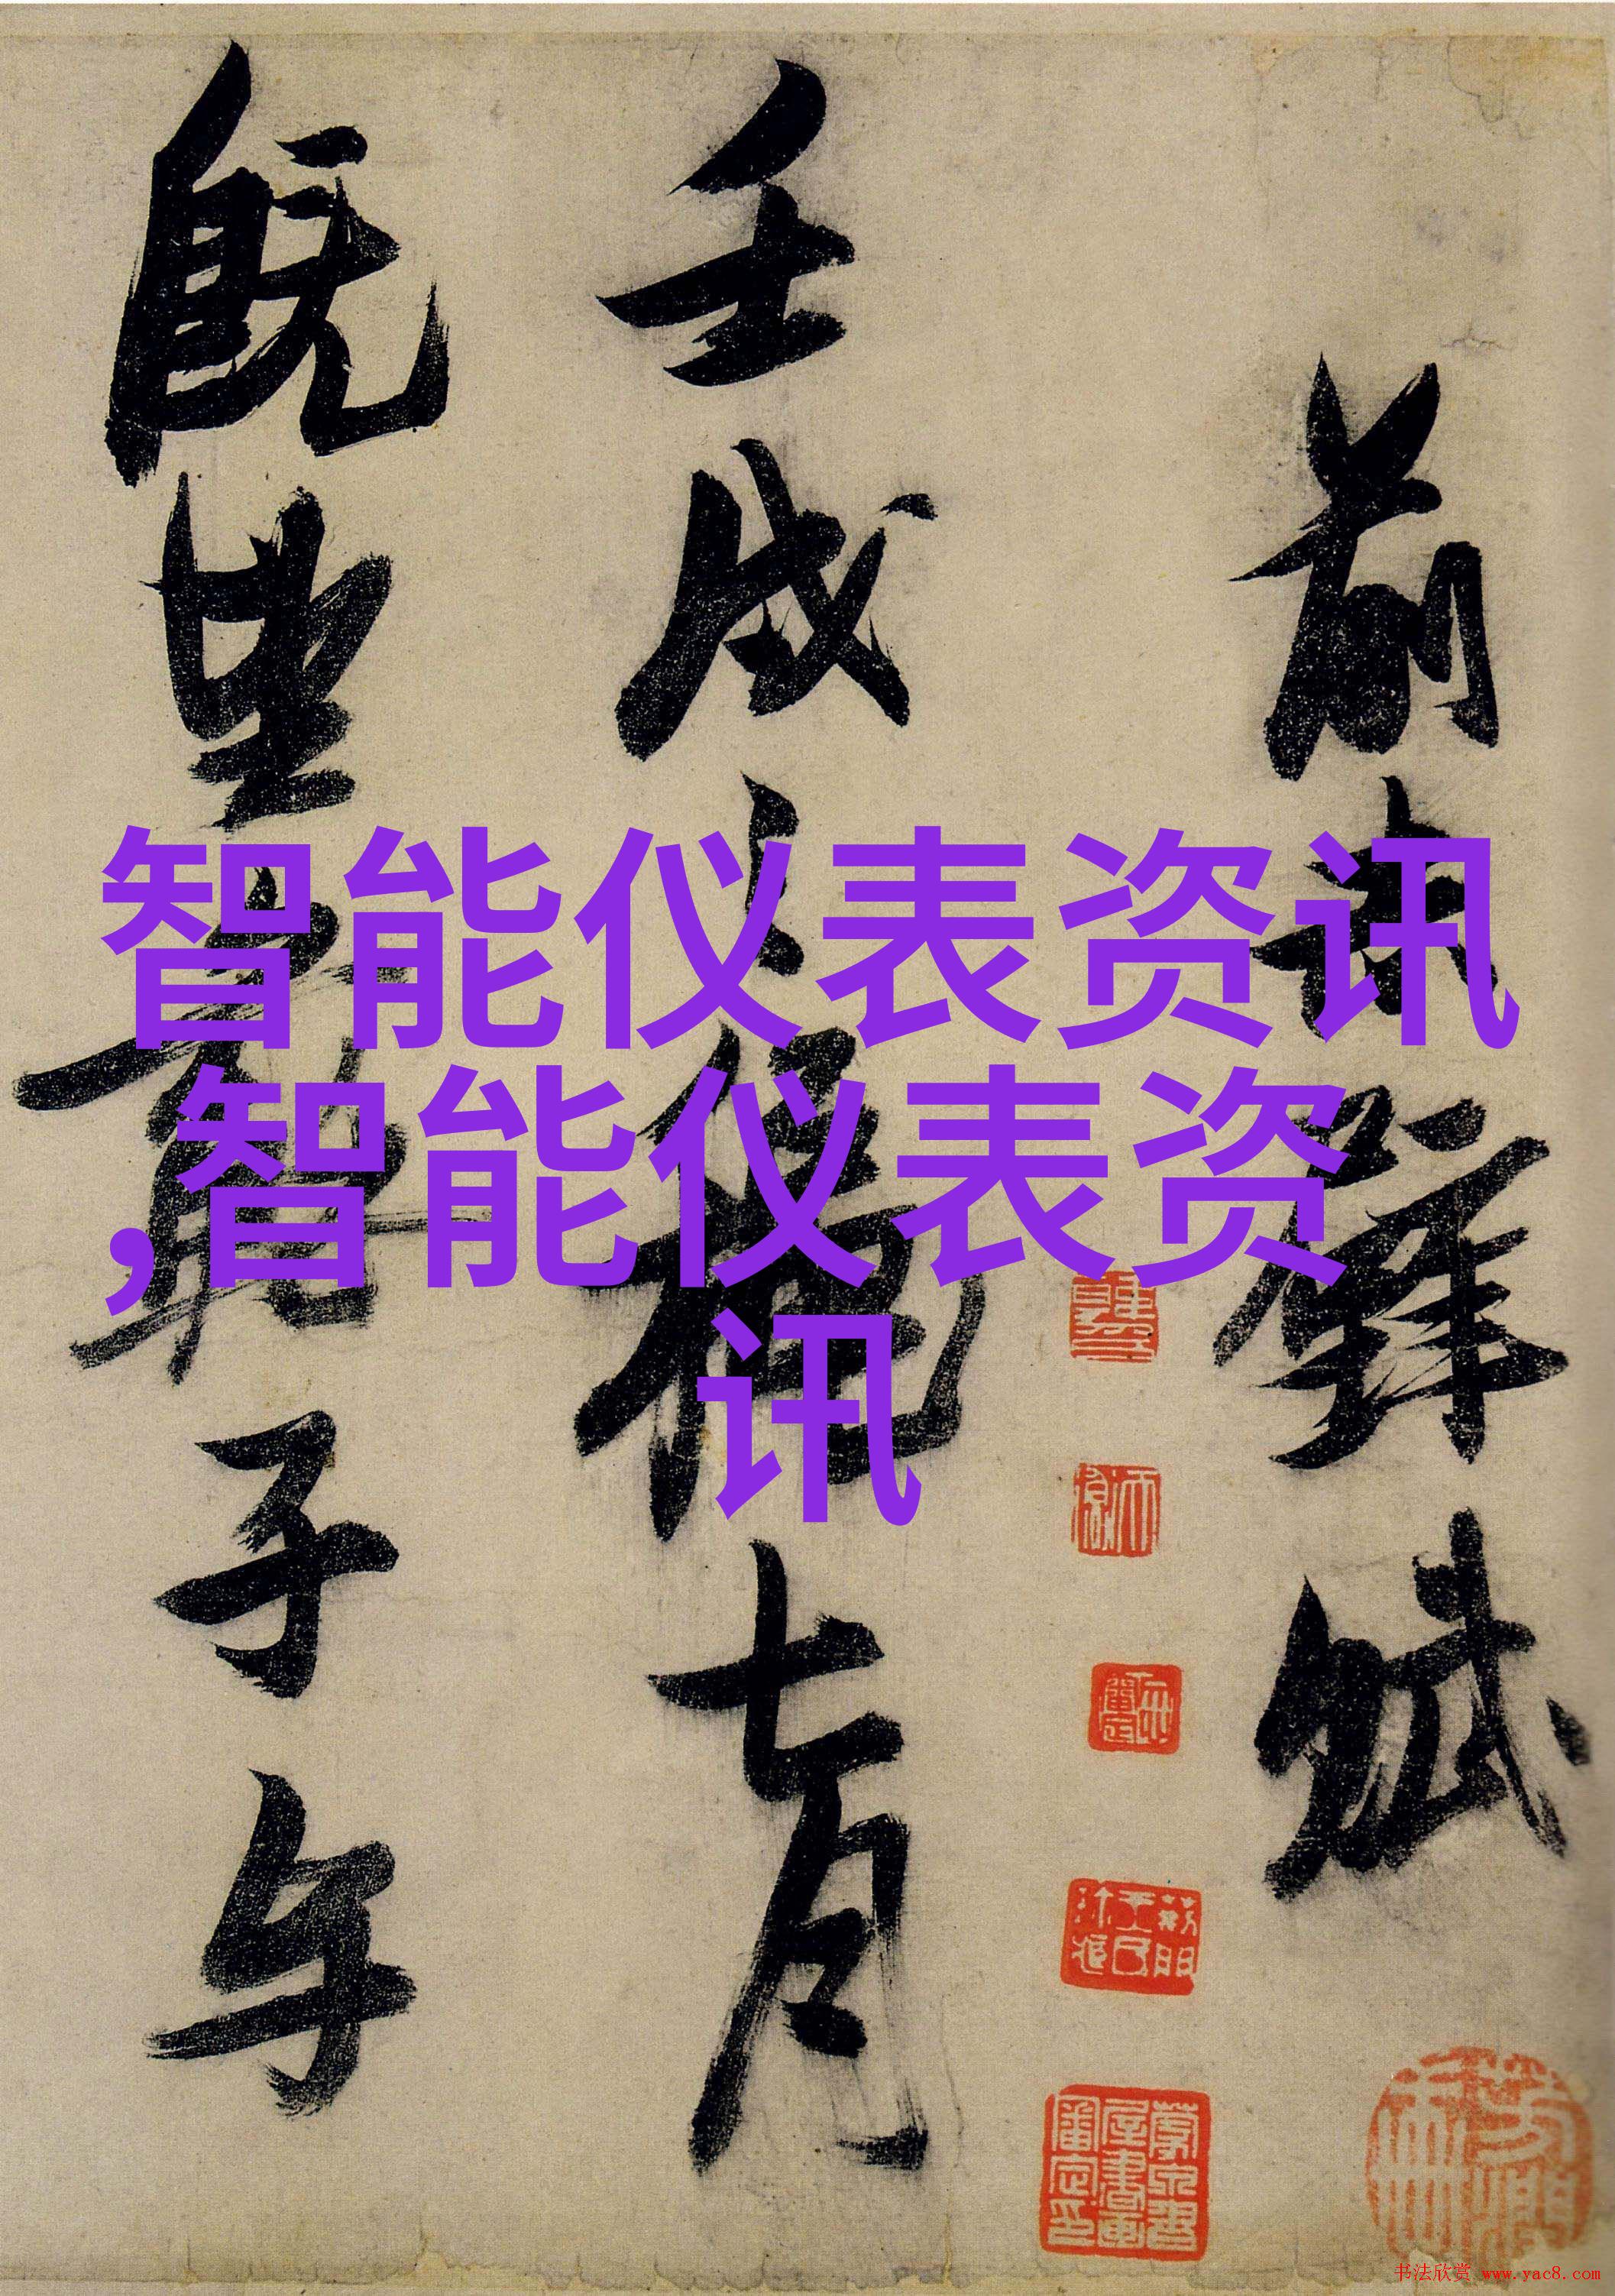 前赤壁賦
壬戌之秋七月
既望蘇子与
智能仪表资讯
,智能仪表资
讯
书法欣赏 www.yac8.com